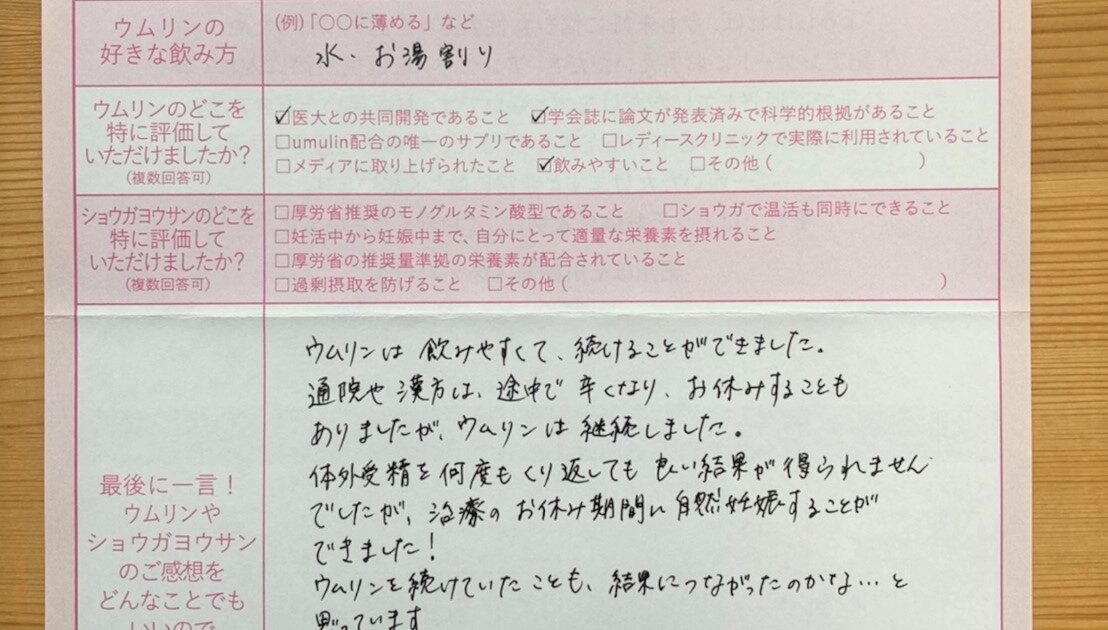 ウムリンの
好きな飲み方
(例)「〇〇に薄める」など
水・お湯割り
ウムリンのどこを
特に評価して
いただけましたか?
(複数回答可)
☑医大との共同開発であること ☑学会誌に論文が発表済みで科学的根拠があること
□umulin配合の唯一のサプリであること □レディースクリニックで実際に利用されていること
□メディアに取り上げられたこと ☑飲みやすいこと □その他( )
ショウガヨウサンのどこを
特に評価して
いただけましたか?
(複数回答可)
□厚労省推奨のモノグルタミン酸型であること □ショウガで温活も同時にできること
□妊活中から妊娠中まで、自分にとって適量な栄養素を摂れること
□厚労省の推奨量準拠の栄養素が配合されていること
□過剰摂取を防げること □その他( )
最後に一言!
ウムリンや
ショウガヨウサン
のご感想を
どんなことでも
いいので
ウムリンは飲みやすくて、続けることができました。
通院や漢方は、途中で辛くなり、お休みすることも
ありましたが、ウムリンは継続しました。
体外受精を何度もくり返しても良い結果が得られません
でしたが、治療のお休み期間に自然妊娠することが
できました!
ウムリンを続けていたことも、結果につながったのかな…と
思っています